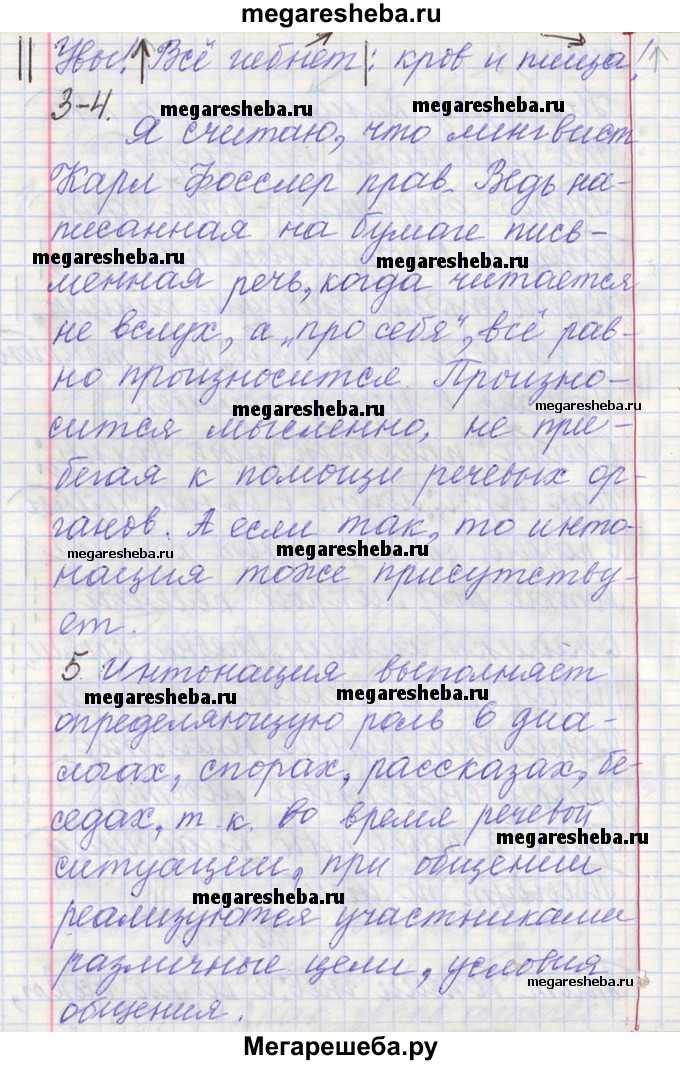 megaresheba.ru
Увы! Всё гибнет: кров и пища!
3-4.
megaresheba.ru
megaresheba.ru
Я считаю, что лингвист
Карл Фосслер прав. Ведь на-
писанная на бумаге пись-
megaresheba.ru
megaresheba.ru
менная речь, когда читается
не вслух, а „про себя“, всё рав-
но произносится. Произно-
megaresheba.ru
megaresheba.ru
сится мысленно, не при-
бегая к помощи речевых ор-
ганов. А если так, то инто-
megaresheba.ru
megaresheba.ru
нация тоже присутству-
ет.
5. Интонация выполняет
megaresheba.ru
megaresheba.ru
определяющую роль в диа-
логах, спорах, рассказах, бе-
седах, т.к. во время речевой
megaresheba.ru
ситуации, при общении
megaresheba.ru
реализуются участниками
различные цели, условия
megaresheba.ru
общения.
Мегарешеба.ру